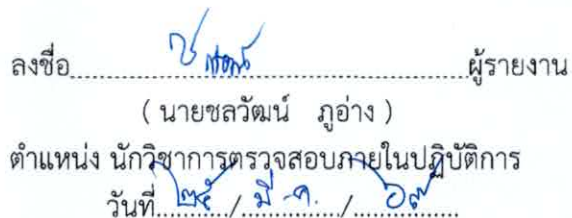 ลงชื่อ........................................ผู้รายงาน
( นายชลวัฒน์ ภูอ่าง )
ตำแหน่ง นักวิชาการตรวจสอบภายในปฏิบัติการ
วันที่ ๒๕ / มี.ค. / ๖๗